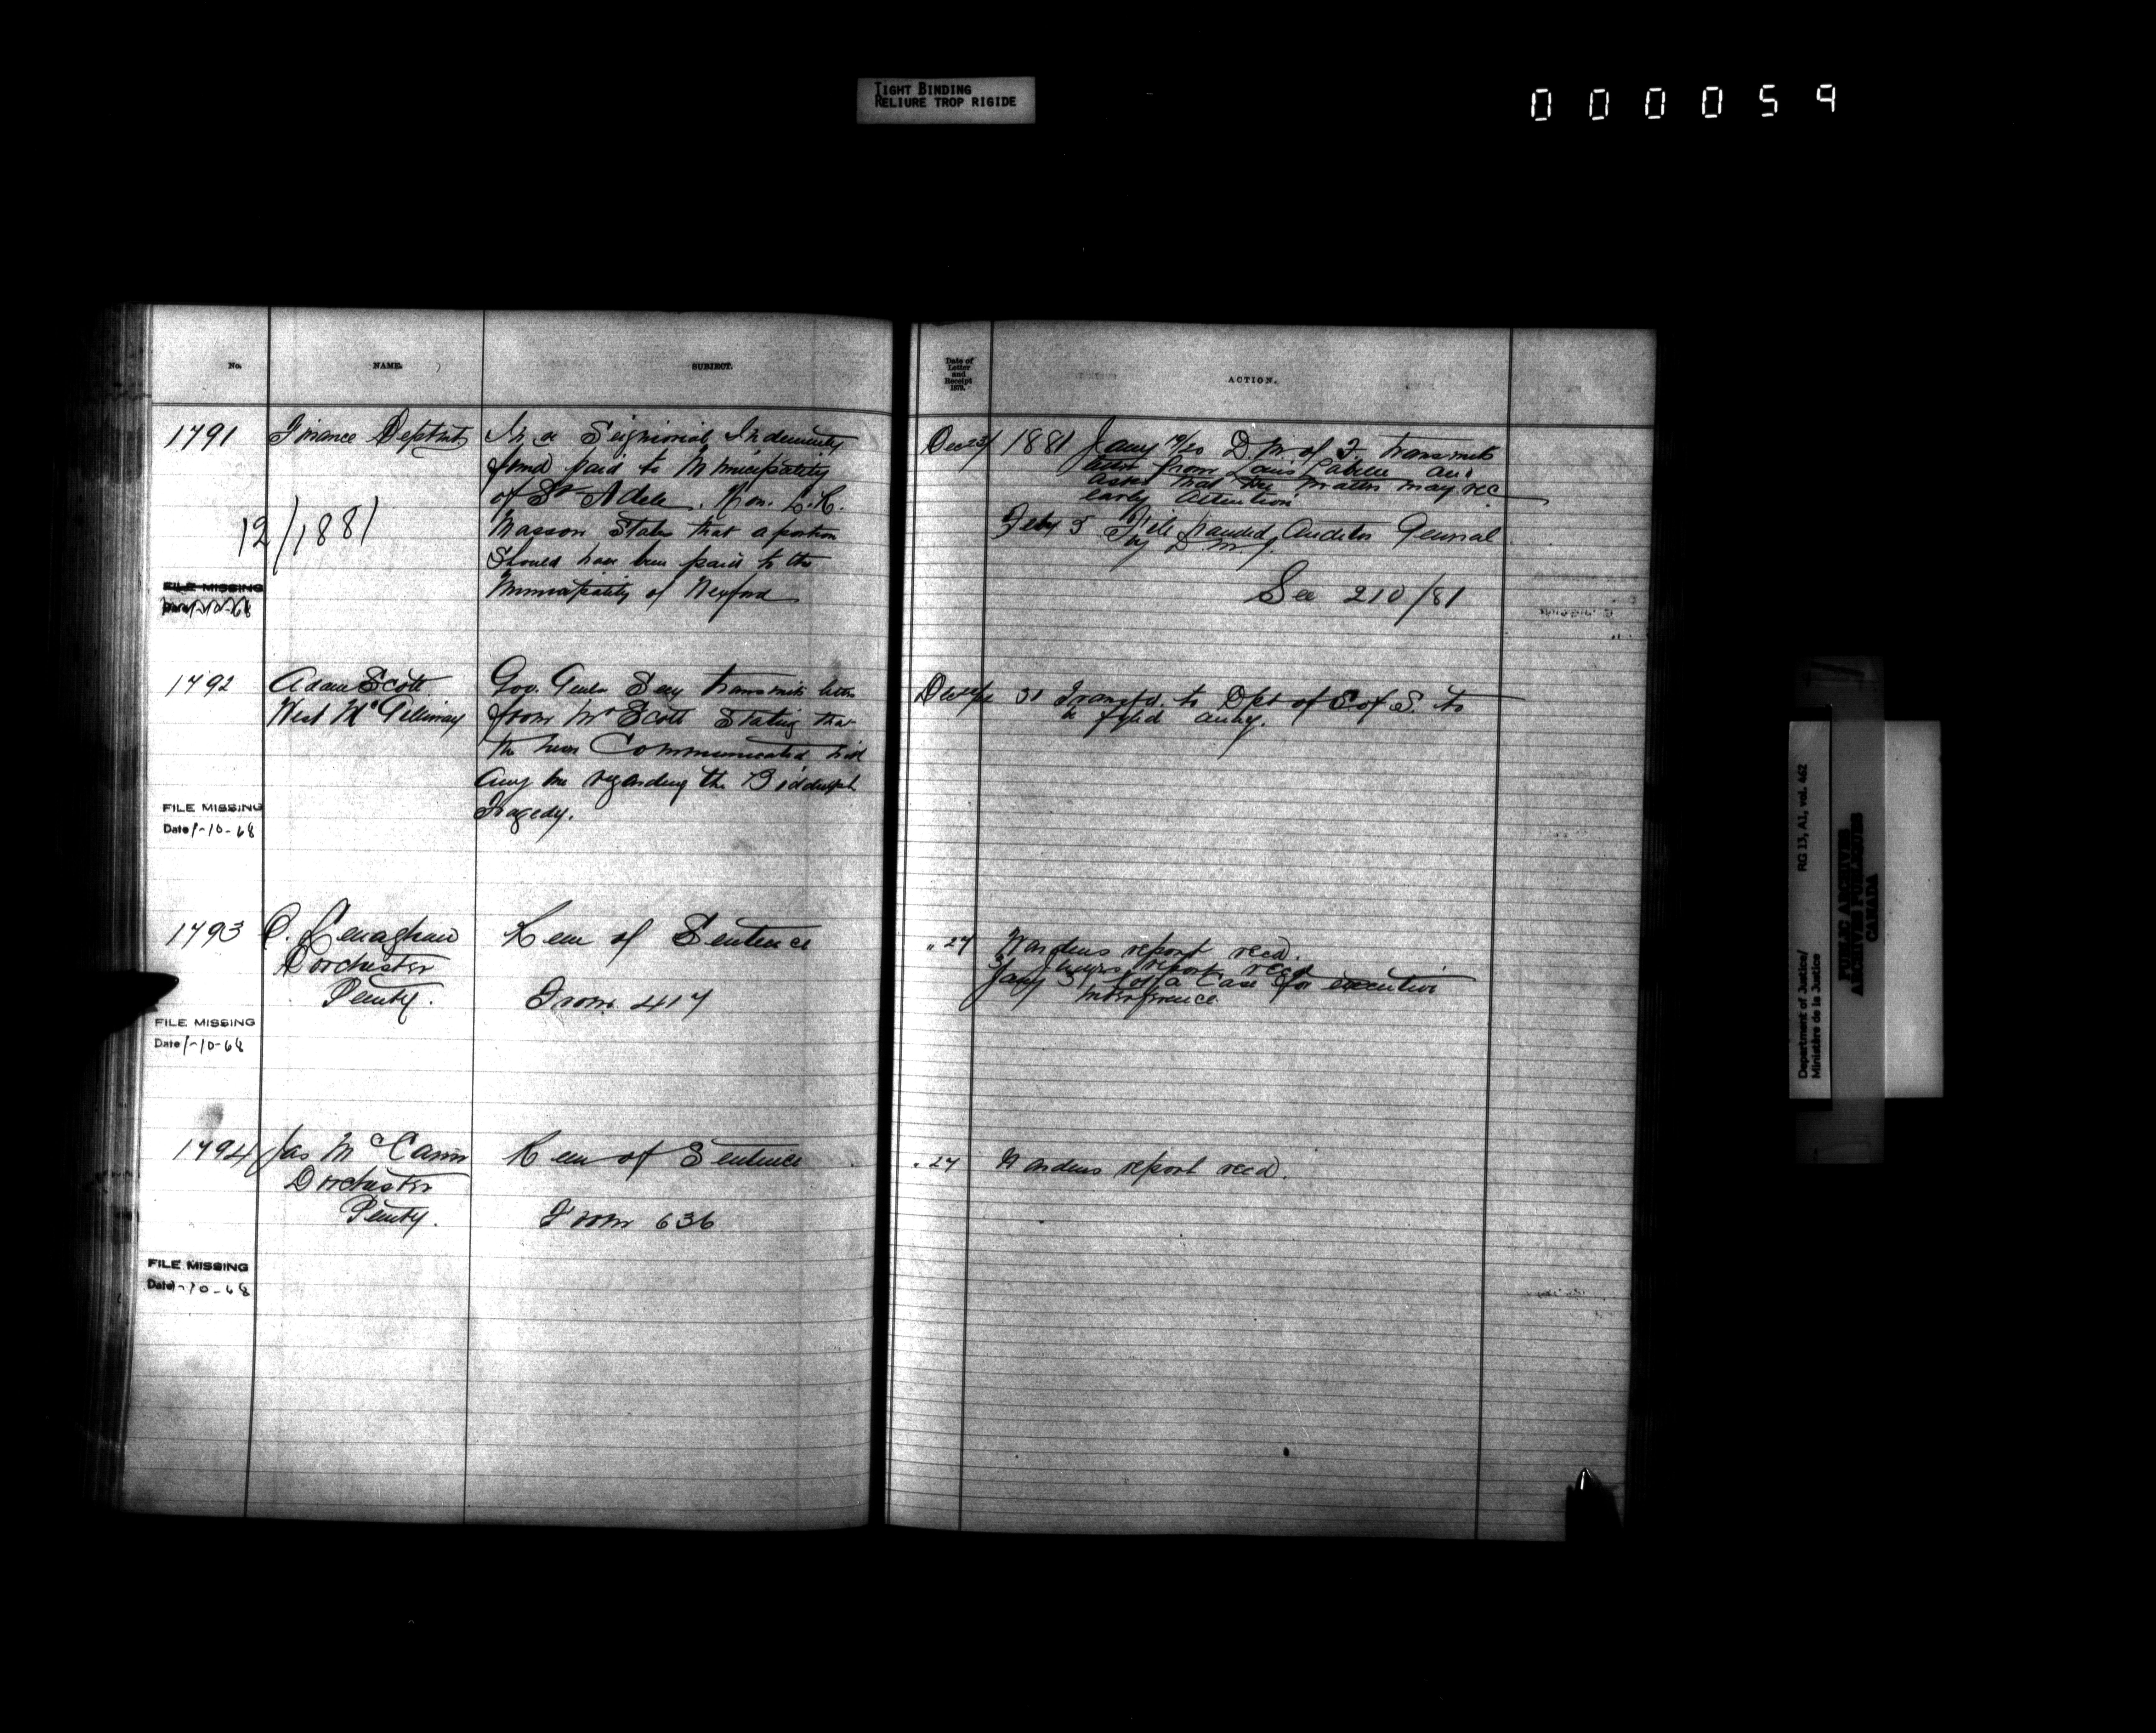 TIGHT BINDING
RELIURE TROP RIGIDE
000059
No.
NAME.
SUBJECT.
1791
Finance Deptmt
In re Seignorial Indemnity
fund paid to Municipality
of St Adele. Hon. L.R.
Masson States that a portion
Should have been paid to the
Municipality of Wexford
12/1881
FILE MISSING
Date 1-10-68
1792
Adam Scott
West McGillivray
Gov. Genls Secy transmits letter
from Mr Scott Stating that
he has Communicated with
any one regarding the Biddulph
Tragedy.
FILE MISSING
Date 1-10-68
1793
Lenaghan
Dorchester
Penty.
Rem of Sentence
From 417
FILE MISSING
Date 1-10-68
1794
Jas McCann
Dorchester
Penty.
Rem of Sentence
From 636
FILE MISSING
Date 1-10-68
Date of
Letter
and
Receipt
1879.
ACTION.
Dec 23/
1881 Jany 19/20 D.M. of F. transmits
letter from Louis Labelle and
asks that the matter may rec
early attention
Feby 5 File handed Auditor General
by D M J.
See 210/81
Dec
31 Transfd. to Dpt of S of S. to
be
" 27
Wardens report recd.
31 Judges report recd
Jany 31 Not a Case for executive
interference
" 27
Wardens report recd.
Department of Justice/
Ministère de la Justice
RG 13, A1, vol. 462
PUBLIC ARCHIVES
ARCHIVES PUBLIQUES
CANADA